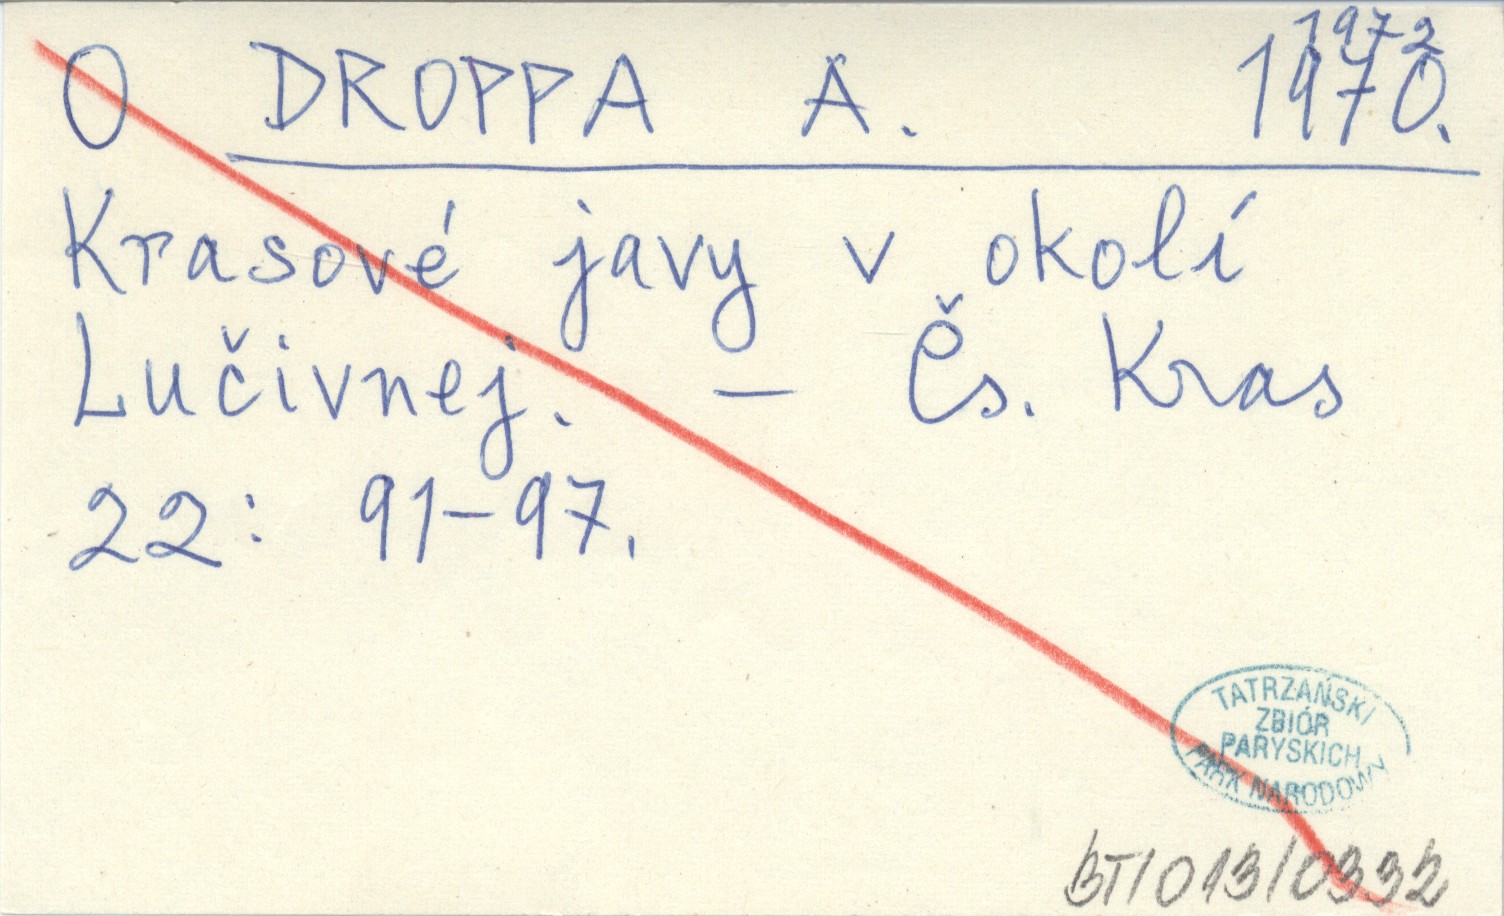 1972
O DROPPA A. 1970.
Krasové javy v okolí
Lučivnej. — Čs. Kras
22: 91-97.
TATRZAŃSKI
ZBIÓR
PARYSKICH
PARK NARODOWY
BT/013/0332